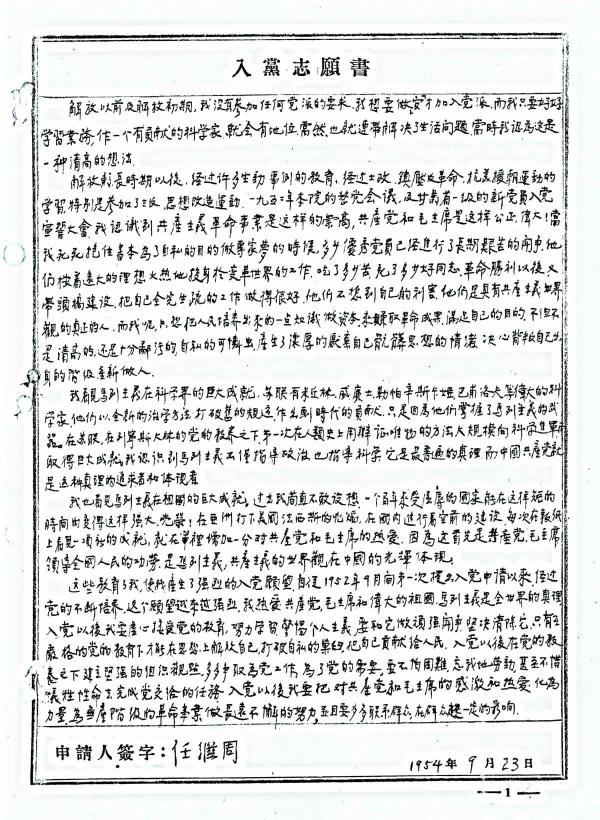 入黨志願書
解放以前及解放初期，我没有参加任何党派的要求，我想要做官才加入党派，而我只要好好
学習業務，作一个有贡献的科学家，就会有地位，当然也就連帶解决了生活問題，當時我認為这是
一种清高的想法。
解放較長時期以後，经过许多生动事例的教育，经过土改、鎮壓反革命、抗美援朝運动的
学習，特别是参加了三反、思想改造運动，一九五二年本院的整党会议，及甘肃省一级的新党员入党
宣誓大會，我认識到共産主義革命事業是这样的崇高，共產党和毛主席是这样公正、偉大！當
我死死抱住書本为了自私的目的做專家夢的時候，多少優秀党员已经進行了長期艱苦的闹争，他
们抱着遠大的理想火热地投身於变革世界的工作，吃了多少苦，死了多少好同志，革命勝利以後又
帶頭搞建设，把自己全完生疏的工作做得很好，他们不想到自己的利害，他们是具有共產主義世界
觀的真正的人。而我呢，只想把人民培养出来的一点知識做资本，来賺取革命成果，滿足自己的目的，不但不
是清高的，还是十分鄙污的，自私的可憐虫，產生了深厚的厭棄自己骯髒思想的情绪，决心背叛自己出
身的階级重新做人。
我看見馬列主義在科学界的巨大成就，苏联有米丘林、威廉士、勒柏辛斯卡娅、巴甫洛夫等偉大的科
学家，他们以全新的治学方法，打破舊的規迹，作出划時代的贡献，只是因为他们掌握了馬列主義的武
器。在苏联，在列寧斯大林的党的教养之下，第一次在人類史上用辯证唯物的方法大規模向科学進軍而
取得巨大成就，我认識到馬列主義不僅指导政治，也指导科学，它是最普遍的真理，而中國共產党就
是这种真理的追求者和体現者。
我也看見馬列主義在祖國的巨大成就，过去我简直不敢设想一个百年来受压辱的國家能在这样短的
時间内变得这样强大、光榮！在亚洲打下美國法西斯的气焰，在國内進行着空前的建设，每次在報紙
上看見一項新的成就，就在心裡增加一分对共產党和毛主席的热爱，因为这首先是共產党、毛主席
領導全國人民的功勞，是馬列主義，共產主義的世界觀在中國的光輝体現。
这些教育了我，使我產生了强烈的入党願望，自從1952年9月向第一次提出入党申請以来，经过
党的不断培养，这个願望越来越强烈，我热爱共產党，毛主席和偉大的祖國，馬列主義是全世界的真理
入党以後我要虚心接受党的教育，努力学習，警惕个人主義，要和它做頑强闹争，坚决清除它，只有在
嚴格的党的教育下才能在思想上解放自己，打破自私的羁绊，把自己贡献给人民，入党以後在党的教
养之下建立坚强的组织觀念，多多争取为党工作，為了党的需要，要不怕困难，忘我地勞动，甚至不惜
犧牲性命去完成党交给的任务，入党以後我要把对共產党和毛主席的感激和热爱，化為
力量，為無產階级的革命事業做長遠不懈的努力，並且要多多联系群众，在群众中起一定的影响。
申請人簽字：任継周
1954年9月23日
1